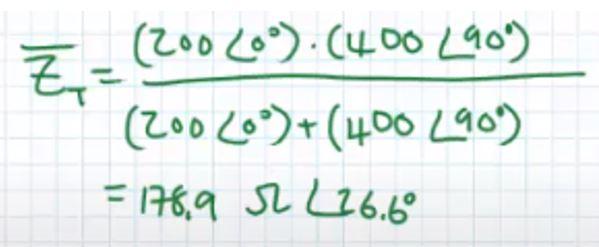 Z̅_T = (200 ∠0°)·(400 ∠90°)
(200 ∠0°)+(400 ∠90°)
= 178.9 Ω ∠26.6°